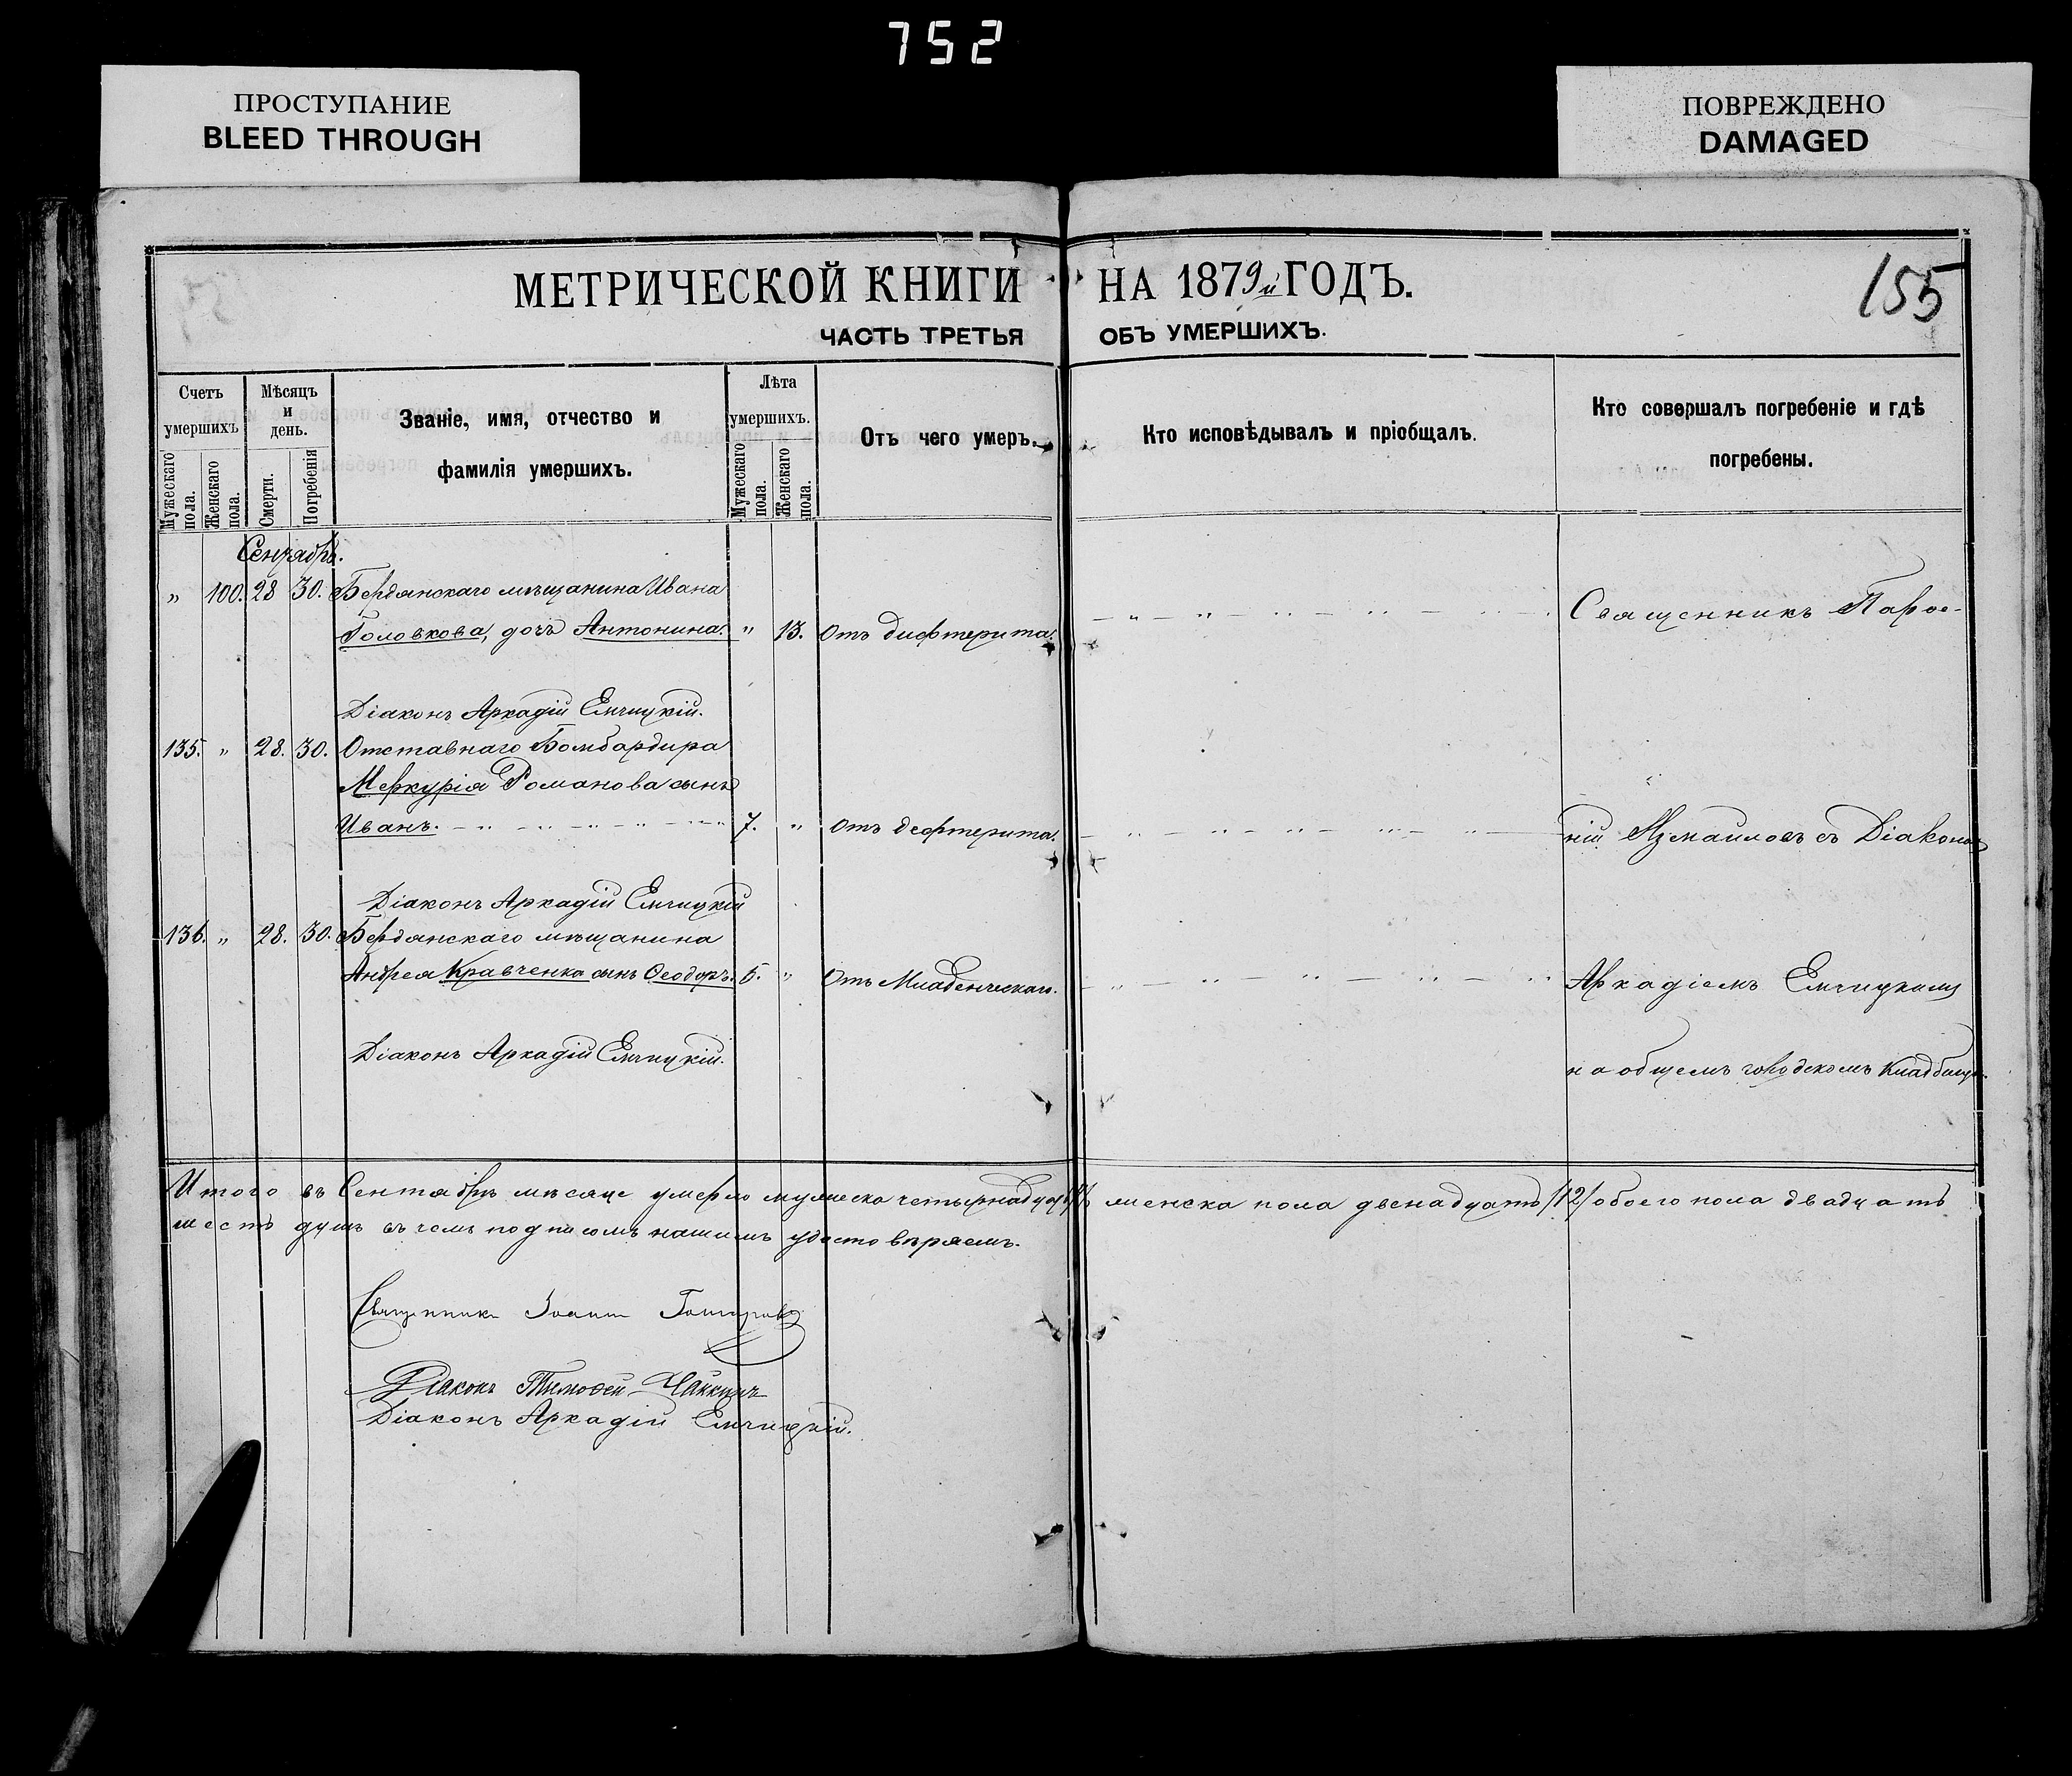 752
ПРОСТУПАНИЕ
BLEED THROUGH
ПОВРЕЖДЕНО
DAMAGED
МЕТРИЧЕСКОЙ КНИГИ НА 1879й ГОДЪ.
155
ЧАСТЬ ТРЕТЬЯ ОБЪ УМЕРШИХЪ.
Счетъ умершихъ
Мужескаго пола.
Женскаго пола.
Мѣсяцъ и день.
Смерти.
Погребенія
Званіе, имя, отчество и
фамилія умершихъ.
Лѣта умершихъ.
Мужескаго пола.
Женскаго пола.
Отъ чего умеръ.
Кто исповѣдывалъ и пріобщалъ.
Кто совершалъ погребеніе и гдѣ
погребены.
Сентябрь.
„ 100. 28 30. Бердянскаго мѣщанина Ивана
Головкова, дочь Антонина. „ 13. Отъ дифтерита.
Священникъ
Діаконъ Аркадій Емчицкій.
135. „ 28. 30. Отставнаго Бомбардира
Меркурія Романова сынъ
Иванъ. 7. „ Отъ дефтерита.
ній Измаиловъ съ Діакономъ
Діаконъ Аркадій Емчицкій
136. „ 28. 30. Бердянскаго мѣщанина
Андрея Кравченка сынъ Ѳеодоръ. 5. „ Отъ Младенческаго.
Аркадіемъ Емчицкимъ
Діаконъ Аркадій Емчицкій.
на общемъ городскомъ кладбищѣ.
Итого въ Сентябрѣ мѣсяце умерло мужеска четырнадцать женска пола двенадцать /12/ обоего пола двадцать
шесть душъ въ чемъ подписомъ нашимъ удостовѣряемъ.
Священникъ Іоаннъ
Діаконъ Тимофей
Діаконъ Аркадій Емчицкій.